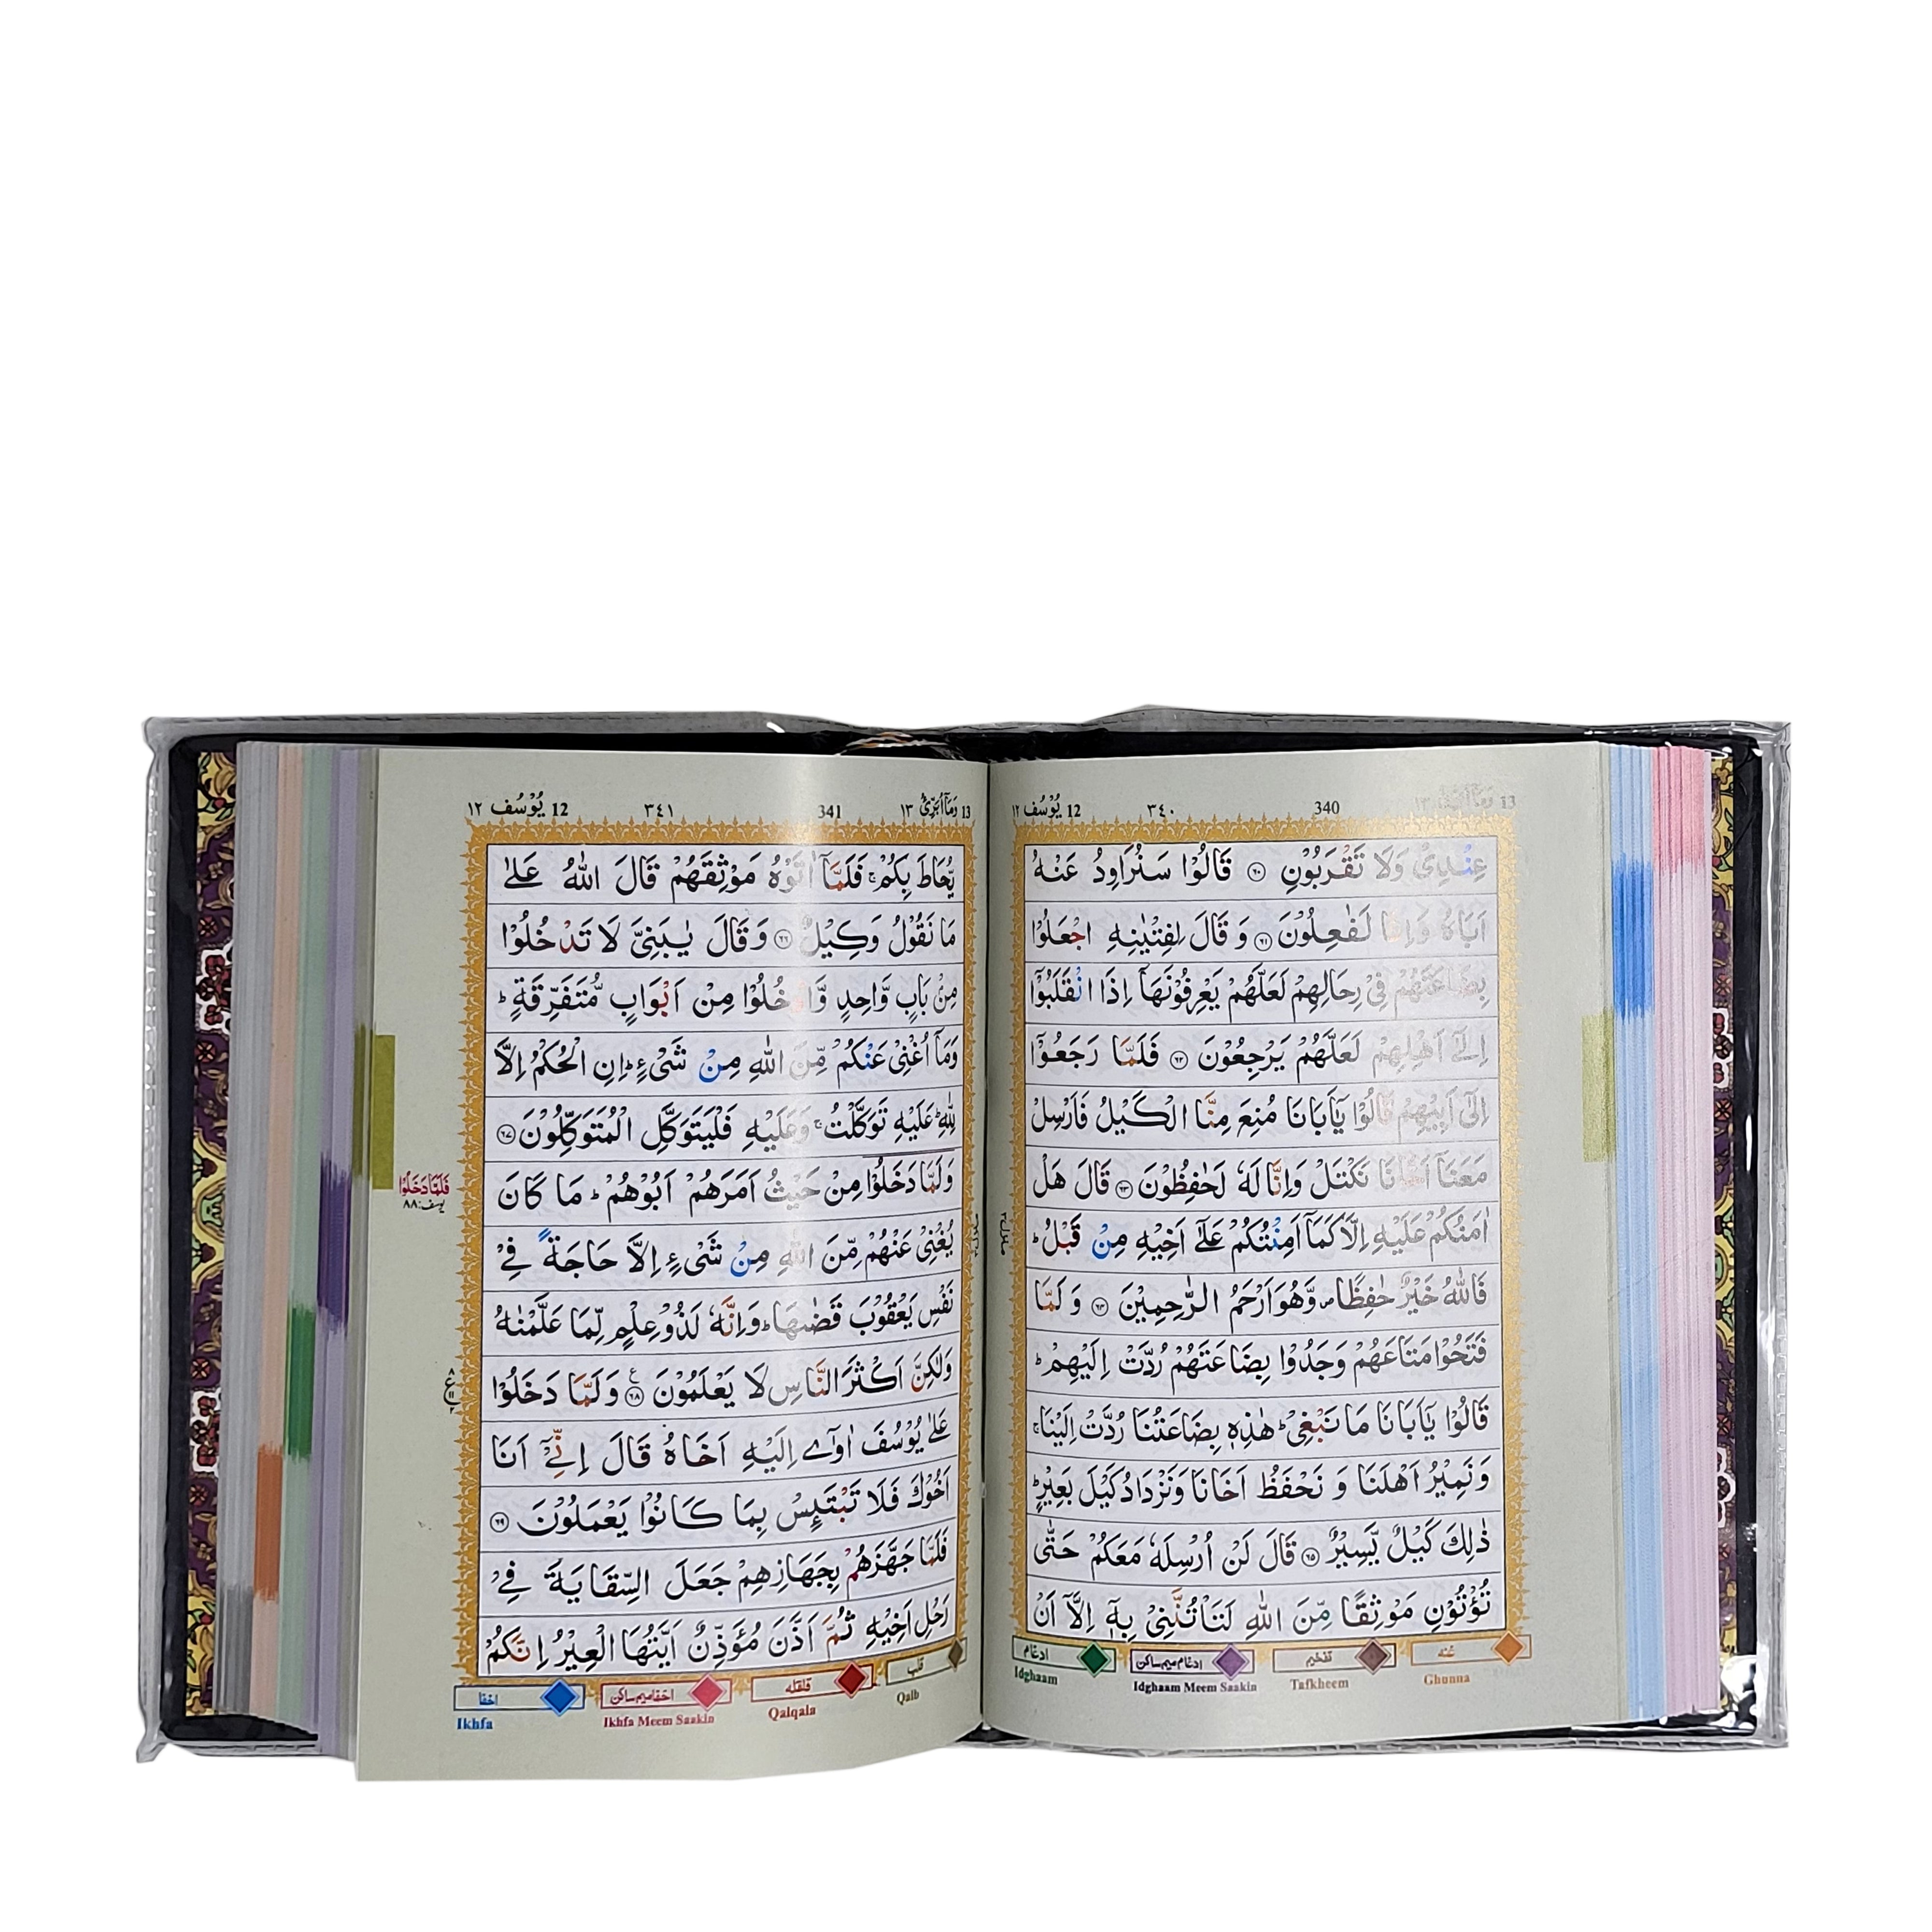 12 يُوْسُف ١٢
٣٤٠
340
13
عِنْدِىْ وَلَا تَقْرَبُوْنِ ۝٦٠ قَالُوْا سَنُرَاوِدُ عَنْهُ
اَبَاهُ وَاِنَّا لَفٰعِلُوْنَ ۝٦١ وَ قَالَ لِفِتْيٰنِهِ اجْعَلُوْا
بِضَاعَتَهُمْ فِىْ رِحَالِهِمْ لَعَلَّهُمْ يَعْرِفُوْنَهَاۤ اِذَا انْقَلَبُوْۤا
اِلٰٓى اَهْلِهِمْ لَعَلَّهُمْ يَرْجِعُوْنَ ۝٦٢ فَلَمَّا رَجَعُوْۤا
اِلٰٓى اَبِيْهِمْ قَالُوْا يٰۤاَبَانَا مُنِعَ مِنَّا الْكَيْلُ فَاَرْسِلْ
مَعَنَاۤ اَخَانَا نَكْتَلْ وَاِنَّا لَهٗ لَحٰفِظُوْنَ ۝٦٣ قَالَ هَلْ
اٰمَنُكُمْ عَلَيْهِ اِلَّا كَمَاۤ اَمِنْتُكُمْ عَلٰٓى اَخِيْهِ مِنْ قَبْلُ ؕ
فَاللّٰهُ خَيْرٌ حٰفِظًا ۪ وَّهُوَ اَرْحَمُ الرّٰحِمِيْنَ ۝٦٤ وَ لَمَّا
فَتَحُوْا مَتَاعَهُمْ وَجَدُوْا بِضَاعَتَهُمْ رُدَّتْ اِلَيْهِمْ ؕ
قَالُوْا يٰۤاَبَانَا مَا نَبْغِىْ ؕ هٰذِهٖ بِضَاعَتُنَا رُدَّتْ اِلَيْنَا ۚ
وَنَمِيْرُ اَهْلَنَا وَ نَحْفَظُ اَخَانَا وَنَزْدَادُ كَيْلَ بَعِيْرٍ ؕ
ذٰلِكَ كَيْلٌ يَّسِيْرٌ ۝٦٥ قَالَ لَنْ اُرْسِلَهٗ مَعَكُمْ حَتّٰى
تُؤْتُوْنِ مَوْثِقًا مِّنَ اللّٰهِ لَتَاْتُنَّنِىْ بِهٖۤ اِلَّاۤ اَنْ
غنه Ghunna
تفخيم Tafkheem
ادغام ميم ساكن Idghaam Meem Saakin
ادغام Idghaam
12 يُوْسُف ١٢
٣٤١
341
13 وَمَاۤ اُبَرِّئُ ١٣
يُّحَاطَ بِكُمْ ۚ فَلَمَّاۤ اٰتَوْهُ مَوْثِقَهُمْ قَالَ اللّٰهُ عَلٰى
مَا نَقُوْلُ وَكِيْلٌ ۝٦٦ وَ قَالَ يٰبَنِىَّ لَا تَدْخُلُوْا
مِنْ بَابٍ وَّاحِدٍ وَّادْخُلُوْا مِنْ اَبْوَابٍ مُّتَفَرِّقَةٍ ؕ
وَمَاۤ اُغْنِىْ عَنْكُمْ مِّنَ اللّٰهِ مِنْ شَىْءٍ ؕ اِنِ الْحُكْمُ اِلَّا
لِلّٰهِ ؕ عَلَيْهِ تَوَكَّلْتُ ۚ وَعَلَيْهِ فَلْيَتَوَكَّلِ الْمُتَوَكِّلُوْنَ ۝٦٧
وَلَمَّا دَخَلُوْا مِنْ حَيْثُ اَمَرَهُمْ اَبُوْهُمْ ؕ مَا كَانَ
يُغْنِىْ عَنْهُمْ مِّنَ اللّٰهِ مِنْ شَىْءٍ اِلَّا حَاجَةً فِىْ
نَفْسِ يَعْقُوْبَ قَضٰىهَا ؕ وَاِنَّهٗ لَذُوْ عِلْمٍ لِّمَا عَلَّمْنٰهُ
وَلٰكِنَّ اَكْثَرَ النَّاسِ لَا يَعْلَمُوْنَ ۝٦٨ وَلَمَّا دَخَلُوْا
عَلٰى يُوْسُفَ اٰوٰۤى اِلَيْهِ اَخَاهُ قَالَ اِنِّىْۤ اَنَا
اَخُوْكَ فَلَا تَبْتَئِسْ بِمَا كَانُوْا يَعْمَلُوْنَ ۝٦٩
فَلَمَّا جَهَّزَهُمْ بِجَهَازِهِمْ جَعَلَ السِّقَايَةَ فِىْ
رَحْلِ اَخِيْهِ ثُمَّ اَذَّنَ مُؤَذِّنٌ اَيَّتُهَا الْعِيْرُ اِنَّكُمْ
فَلَمَّا دَخَلُوْا
يوسف:٨٨
قلب Qalb
قلقله Qalqala
اخفا ميم ساكن Ikhfa Meem Saakin
اخفا Ikhfa